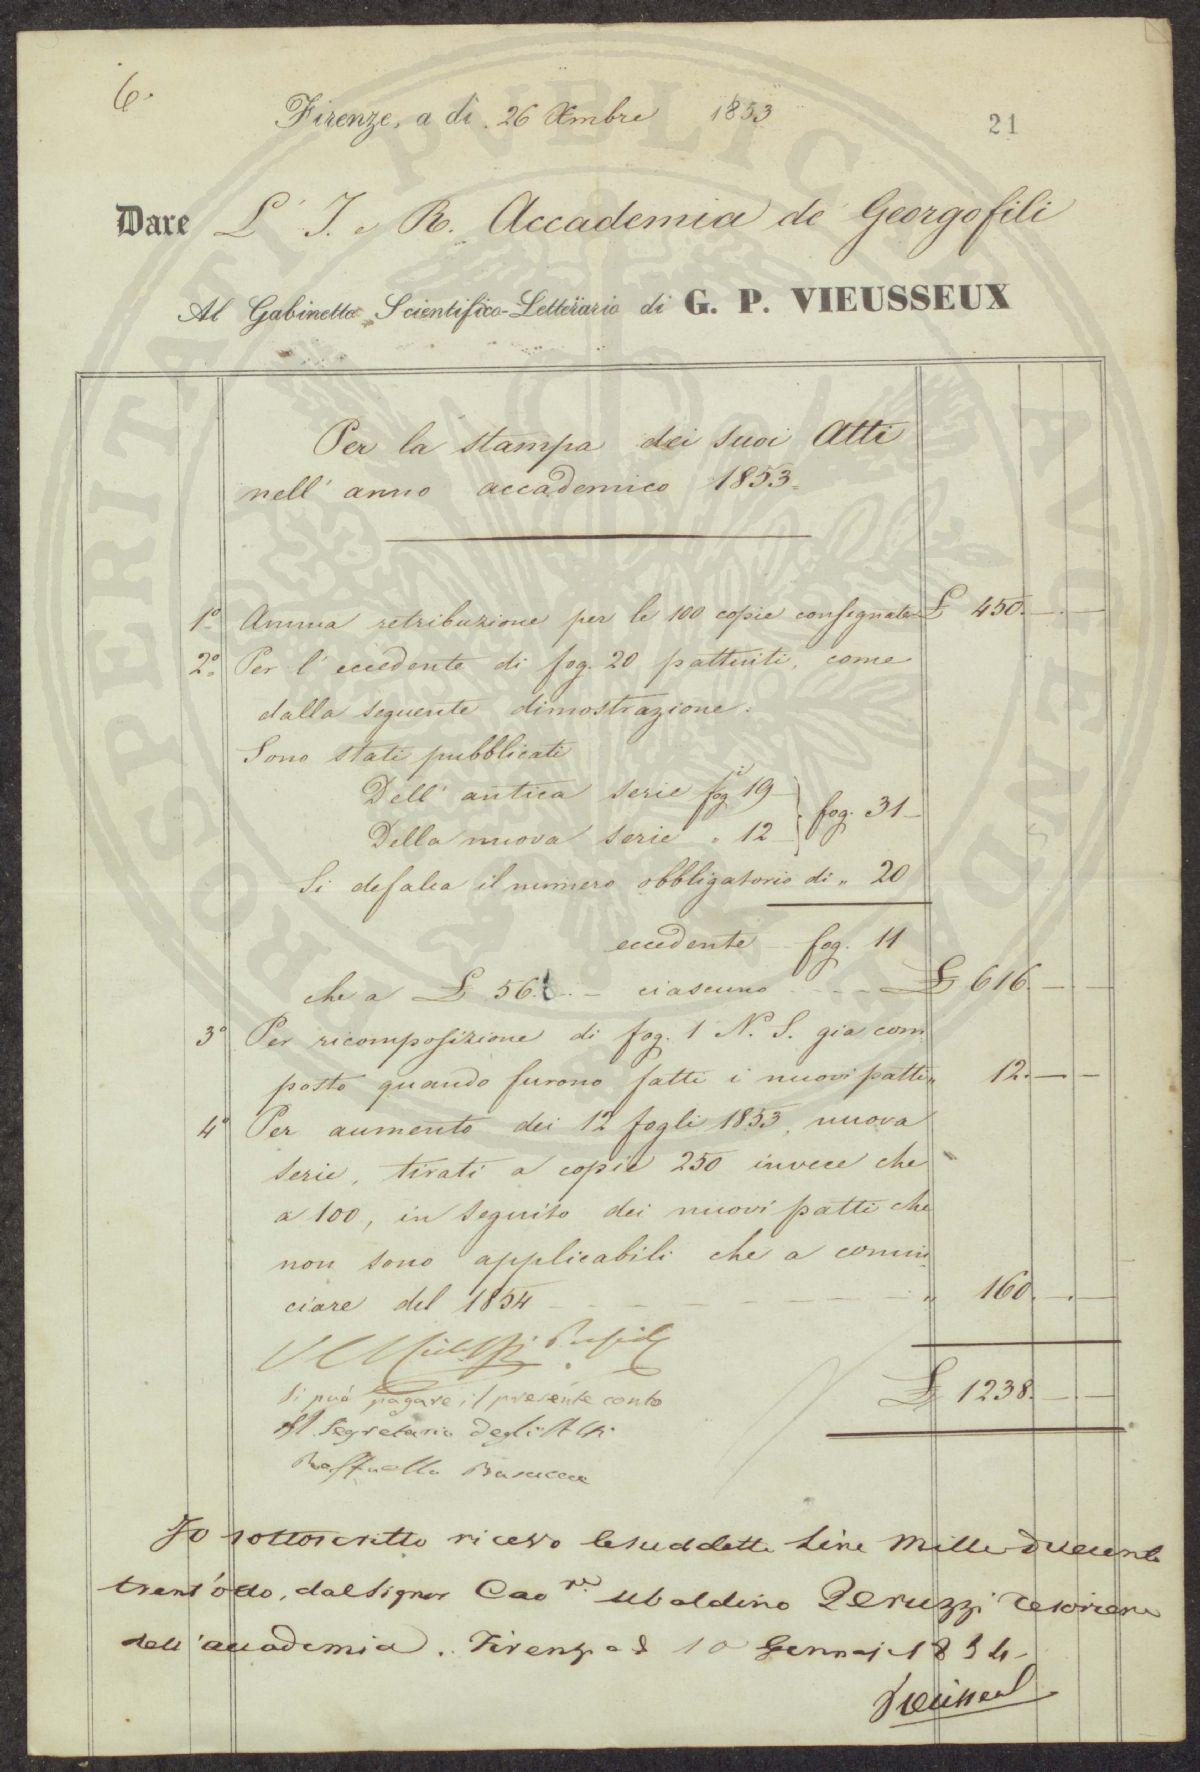 6.
Firenze, a dì 26 Xmbre 1853
21
Dare L' I. e R. Accademia de' Georgofili
Al Gabinetto Scientifico-Letterario di G. P. VIEUSSEUX
Per la stampa dei suoi Atti
nell' anno accademico 1853.
1º Annua retribuzione per le 100 copie consegnate £ 450. — . —
2º Per l' eccedente di fog. 20 pattuiti, come
dalla seguente dimostrazione.
Sono stati pubblicati
Dell' antica serie fogi 19
Della nuova serie " 12
fog. 31 —
Si defalca il numero obbligatorio di " 20
eccedente — fog. 11
che a £ 56. — ciascuno - - - £ 616. — . —
3º Per ricomposizione di fog. 1 N. S. gia com
posto quando furono fatti i nuovi patti " 12. — . —
4º Per aumento dei 12 fogli 1853, nuova
serie, tirati a copie 250 invece che
a 100, in seguito dei nuovi patti che
non sono applicabili che a comin
ciare del 1854 - - - - " 160. — . —
£ 1238. — . —
Si può pagare il presente conto
Il Segretario degli Atti
Raffaello
Io sottoscritto ricevo le suddette Lire Mille duecento
trent'otto, dal Signor Cavre Ubaldino Peruzzi Tesoriere
dell' accademia. Firenze a dì 10 Gennaj 1854
Vieusseux
PROSPERITATI PVBLICAE AVGENDAE